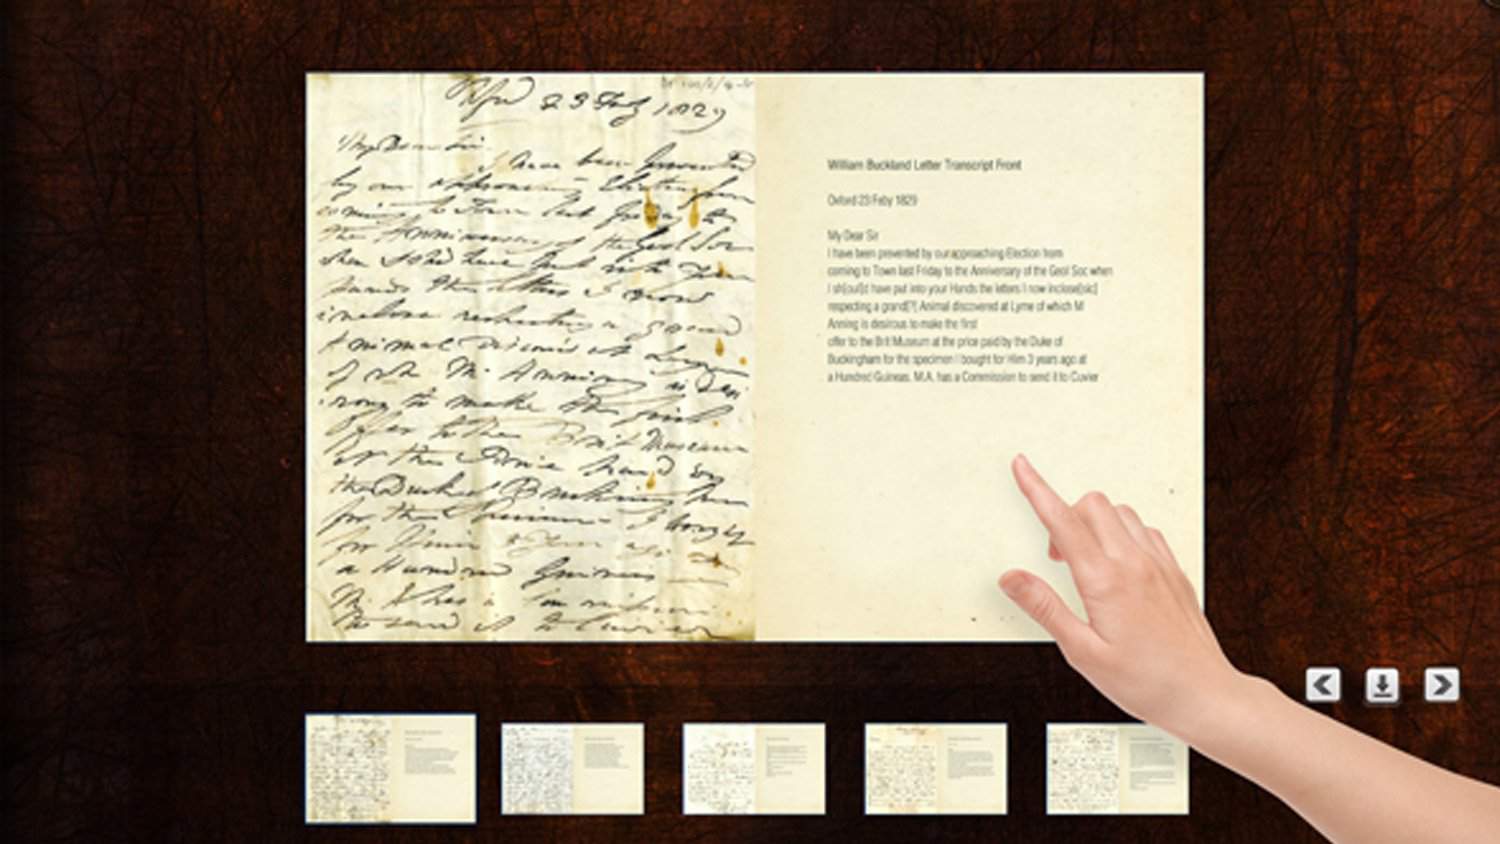 Oxford 23 Feby 1829
My Dear Sir
I have been prevented
by our approaching Election from
coming to Town last Friday to
the Anniversary of the Geol Soc
when I shd have put into your
hands the letters I now
inclose respecting a grand
Animal discovered at Lyme
of wh M. Anning is desi
rous to make the first
offer to the Brit Museum
at the Price paid by
the Duke of Buckingham
for the Specimen I bought
for Him 3 years ago at
a Hundred Guineas
M. A has a Commission
to send it to Cuvier
William Buckland Letter Transcript Front
Oxford 23 Feby 1829
My Dear Sir
I have been prevented by our approaching Election from
coming to Town last Friday to the Anniversary of the Geol Soc when
I sh[oul]d have put into your Hands the letters I now inclose[sic]
respecting a grand[?] Animal discovered at Lyme of which M
Anning is desirous to make the first
offer to the Brit Museum at the price paid by the Duke of
Buckingham for the specimen I bought for Him 3 years ago at
a Hundred Guineas. M.A. has a Commission to send it to Cuvier